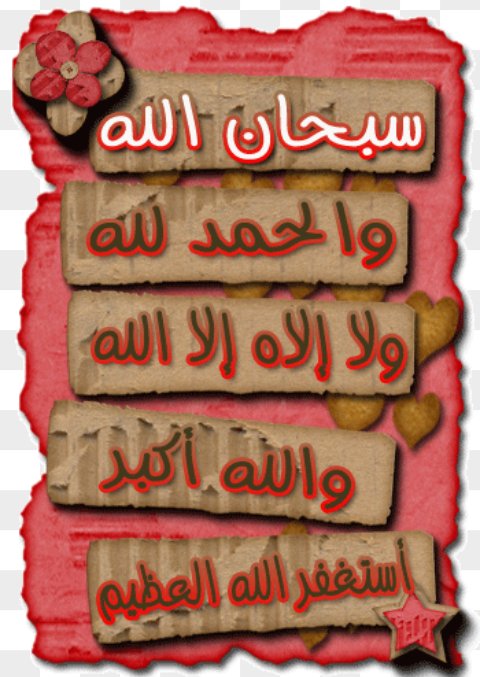 سبحان الله
والحمد لله
ولا إلاه إلا الله
والله أكبر
أستغفر الله العظيم